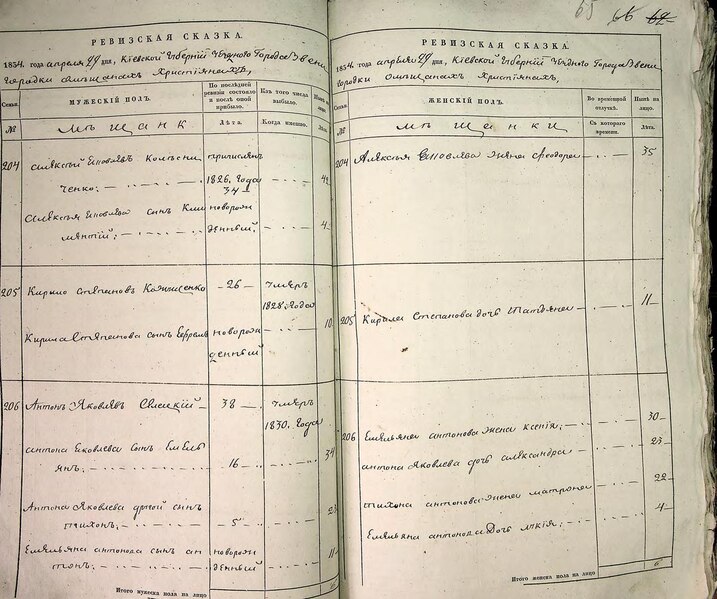 65 66 62
РЕВИЗСКАЯ СКАЗКА.
1834. года апреля 29 дня, Кіевской Губерніи Уѣзднаго Города Звени
городки о мѣщанахъ Христіянахъ,
Семьи.
МУЖЕСКІЙ ПОЛЪ.
По послѣдней ревизіи состояло и послѣ оной прибыло.
Изъ того числа выбыло.
Нынѣ на лицо.
№
Мѣщане
Лѣта.
Когда именно.
Лѣта.
204 Алексѣй Яковлевъ Колѣсни причисленъ
ченко: 1826. Года 34 42
Алексѣя Яковлева сынъ Кли новорож
ментій: денный, 4
205 Кирило Степановъ 26 умеръ
1828. Года
Кирила Степанова сынъ Ефремъ новорож 10
денный
206 Антонъ Яковлевъ 38 умеръ
1830. Года
антона Яковлева сынъ Емель
янъ: 16 34
Антона Яковлева другой сынъ
тихонъ: 5 23
Емельяна антонова сынъ ан новорож
тонъ: денный 11
Итого мужеска пола на лицо 6
РЕВИЗСКАЯ СКАЗКА.
1834. года апреля 29 дня, Кіевской Губерніи Уѣзднаго Города Звени
городки о мѣщанахъ Христіянахъ,
Семьи.
ЖЕНСКІЙ ПОЛЪ.
Во временной отлучкѣ.
Нынѣ на лицо.
№
Мѣщанки
Съ котораго времени.
Лѣта.
204 Алексѣя Яковлева жена Ѳеодора 35
205 Кирила Степанова дочь Татьяна 11
206 Емельяна антонова жена ксенія: 30
антона Яковлева дочь александра 23
тихона антонова жена матрона 22
Емельяна антонова Дочь 4
Итого женска пола на лицо 6